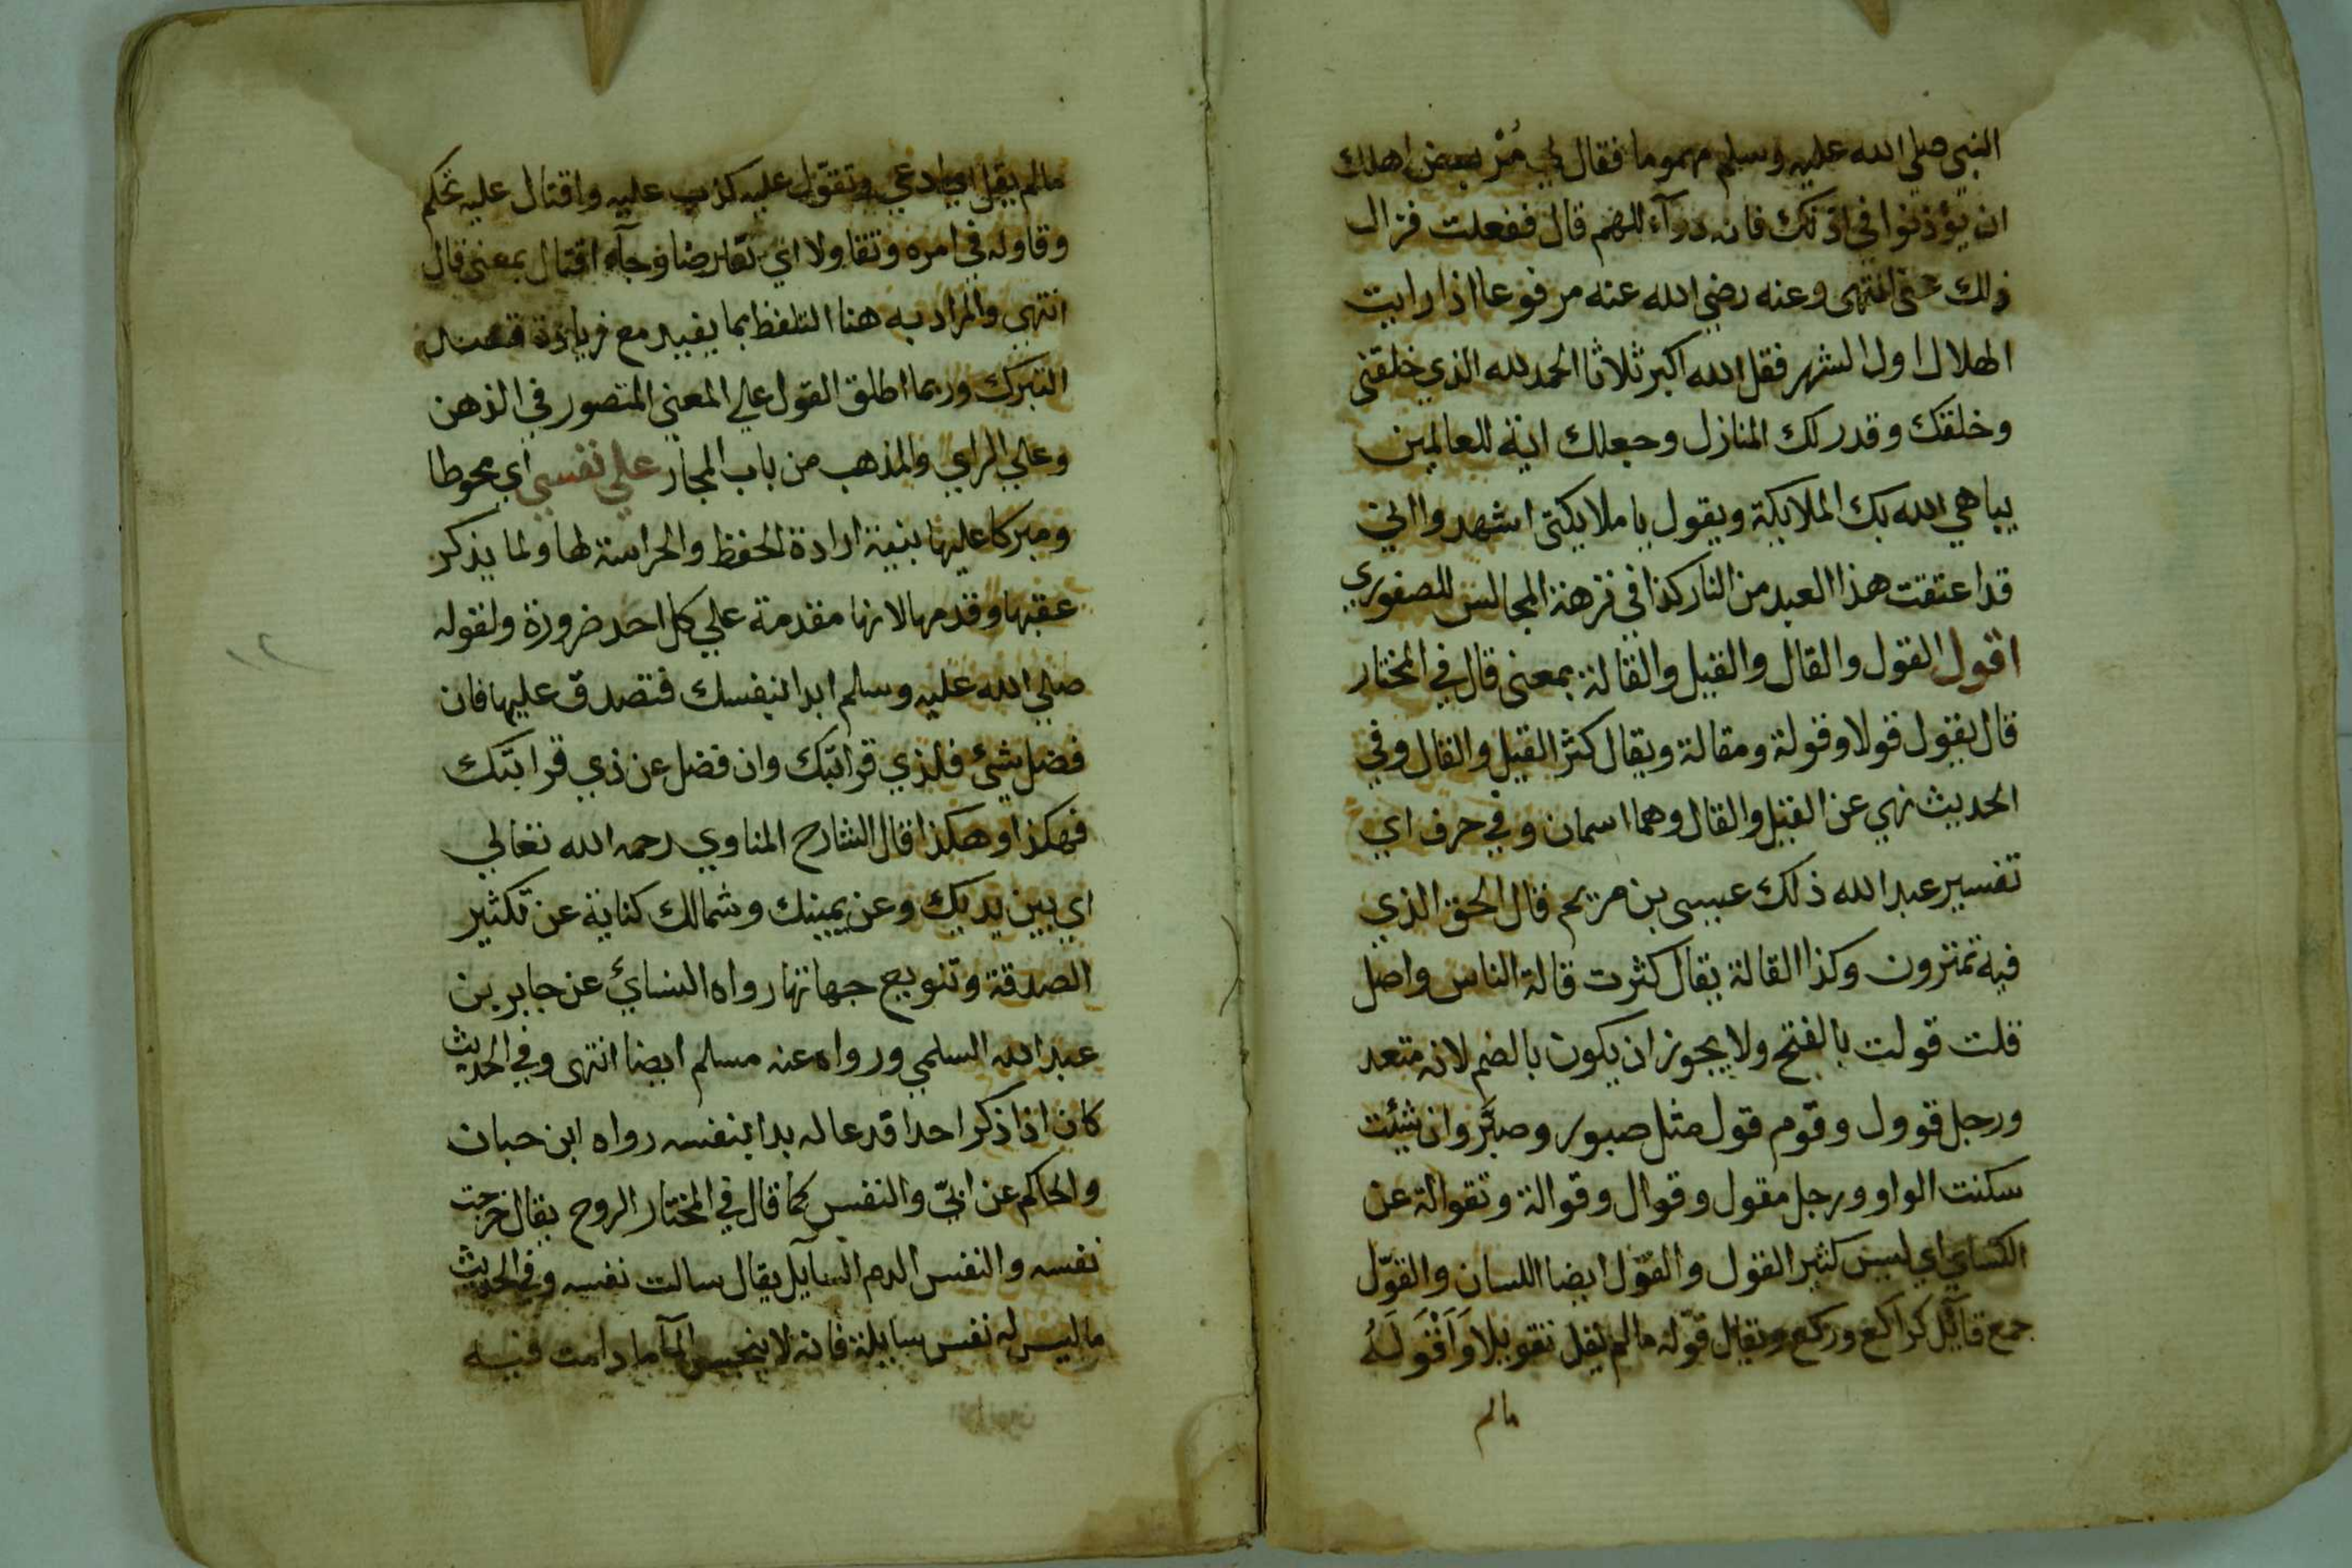 النبي صلى الله عليه وسلم مهموما فقال لي مُرْ بعض اهلك
ان يؤذنوا في اذنك فانه دوآء للهم قال ففعلت فزال
ذلك عني انتهى وعنه رضي الله عنه مرفوعا اذا رايت
الهلال اول الشهر فقل الله اكبر ثلاثا الحمد لله الذي خلقني
وخلقك وقدر لك المنازل وجعلك اية للعالمين
يباهي الله بك الملايكة ويقول يا ملايكتي اشهدوا اني
قد اعتقت هذا العبد من النار كذا في نزهة المجالس للصفوري
اقول القول والقال والقيل والقالة بمعنى قال في المختار
قال يقول قولا وقولة ومقالة ويقال كثر القيل والقال وفي
الحديث نهي عن القيل والقال وهما اسمان وفي حرف اي
تفسير عبد الله ذلك عيسى بن مريم قال الحق الذي
فيه تمترون وكذا القالة يقال كثرت قالة الناس واصل
قلت قولت بالفتح ولا يجوز ان يكون بالضم لانه متعد
ورجل قوول وقوم قول مثل صبور وصبر وان شئت
سكنت الواو ورجل مقول وقوال وقوالة وتقوالة عن
الكساي اي لسن كثير القول والقوّل ايضا اللسان والقوّل
جمع قائل كراكع وركع ويقال قوّله مالم يقل تقويلا وَاَقْوَلَهُ
مالم
مالم يقل اي ادعي وتقوّل عليه كذب عليه واقتال عليه تحكم
وقاوله في امره وتقاولا اي تفارضا وجآء اقتال بمعنى قال
انتهى والمراد به هنا التلفظ بما يفيد مع زيادة قصد
التبرك وربما اطلق القول علي المعني المتصور في الذهن
وعلي الراي والمذهب من باب المجاز علي نفسي اي محوطا
ومبركا عليها بنية ارادة الحفظ والحراسة لها ولما يذكر
عقبها وقدمها لانها مقدمة علي كل احد ضرورة ولقوله
صلي الله عليه وسلم ابدا بنفسك فتصدق عليها فان
فضل شئ فلذي قرابتك وان فضل عن ذي قرابتك
فهكذا وهكذا قال الشارح المناوي رحمه الله تعالي
اي بين يديك وعن يمينك وشمالك كناية عن تكثير
الصدقة وتنويع جهاتها رواه النسائ عن جابر بن
عبد الله السلمي ورواه عنه مسلم ايضا انتهى وفي الحديث
كان اذا ذكر احدا قد عا له بدا بنفسه رواه ابن حبان
والحاكم عن ابيّ والنفس كما قال في المختار الروح يقال خرجت
نفسه والنفس الدم السايل يقال سالت نفسه وفي الحديث
ما ليس له نفس سايلة فانه لا ينجس المآ ما دامت فيه